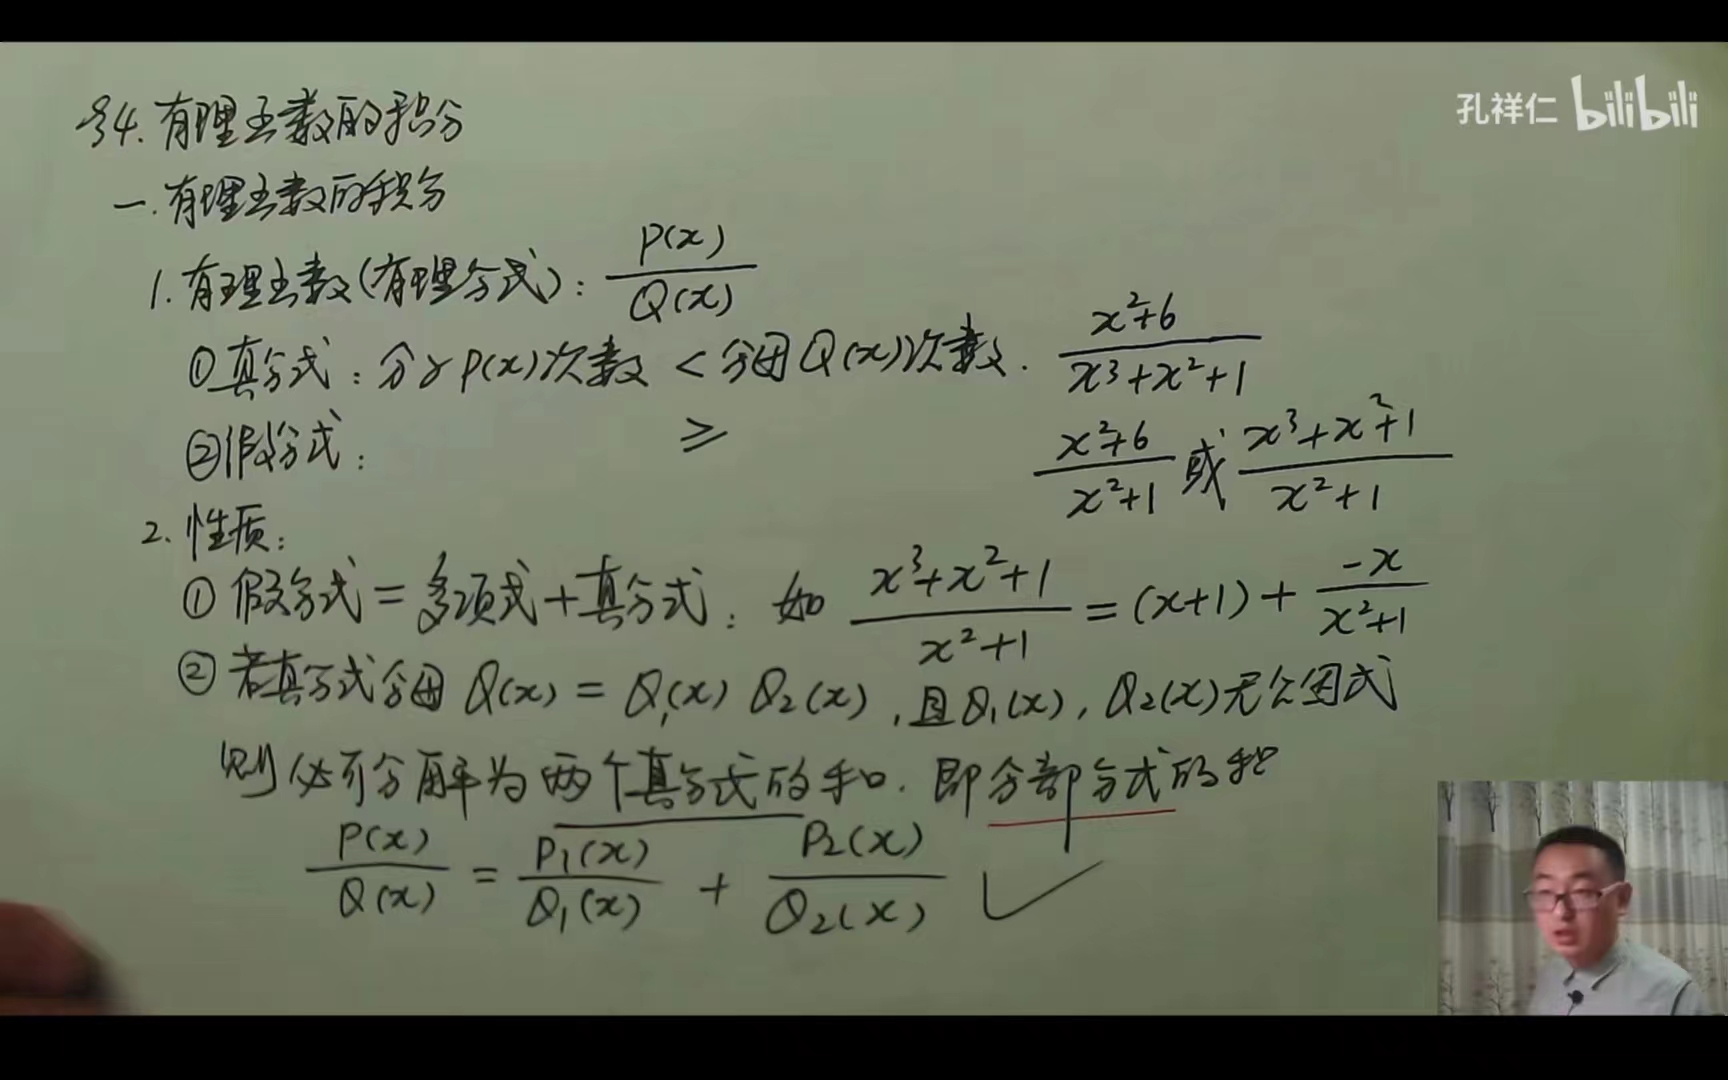 §4. 有理函数的积分
孔祥仁 bilibili
一. 有理函数的积分
1. 有理函数(有理分式): P(x)/Q(x)
①真分式: 分子P(x)次数 < 分母Q(x)次数. (x²+6)/(x³+x²+1)
②假分式: ≥ (x²+6)/(x²+1) 或 (x³+x²+1)/(x²+1)
2. 性质:
① 假分式 = 多项式 + 真分式. 如 (x³+x²+1)/(x²+1) = (x+1) + (-x)/(x²+1)
② 若真分式分母 Q(x) = Q₁(x) Q₂(x), 且Q₁(x), Q₂(x)无公因式
则必可分解为两个真分式的和. 即分部分式的和
P(x)/Q(x) = P₁(x)/Q₁(x) + P₂(x)/Q₂(x) ✓